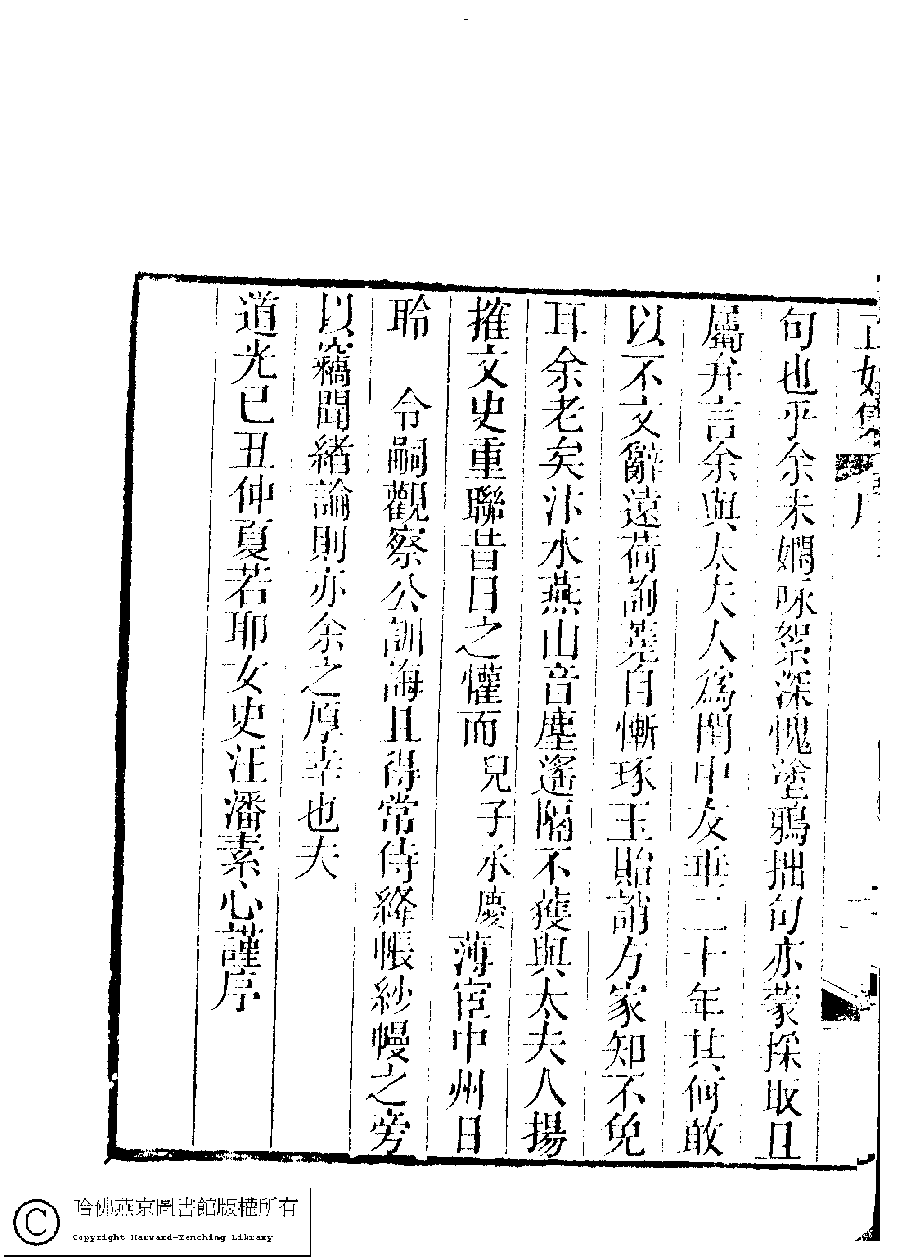 正始集 序
句也乎余未嫺咏絮深愧塗鴉拙句亦蒙採取且
屬弁言余與太夫人為閨中友垂二十年其何敢
以不文辭遠荷詢蕘自慚琢玉貽誚方家知不免
耳余老矣汴水燕山音塵遙隔不獲與太夫人揚
搉文史重聯昔日之懽而兒子承慶薄宦中州日
聆　令嗣觀察公訓誨且得常侍絳帳紗幔之旁
以竊聞緒論則亦余之厚幸也夫
道光己丑仲夏若耶女史汪潘素心謹序
哈佛燕京圖書館版權所有
Copyright Harvard-Yenching Library